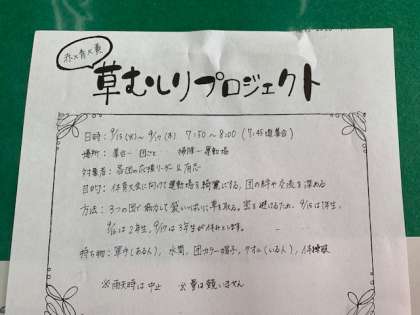 赤×青×黄
草むしりプロジェクト
日時: 9/15(火)～9/17(木) 7:50～8:00 (7:45集合)
場所: 集合…団ごと 掃除…運動場
対象者: 各団の応援リーダー&有志
目的: 体育大会に向けて運動場を綺麗にする。団の絆や交流を深める
方法: 3つの団で協力して袋いっぱいに草を取る。密を避けるため、9/15は1年生、
9/16は2年生、9/17は3年生が行います。
持ち物: 軍手(ある人)、水筒、団カラー帽子、タオル(いる人)、体操服
※雨天時は中止 ※ 競いません